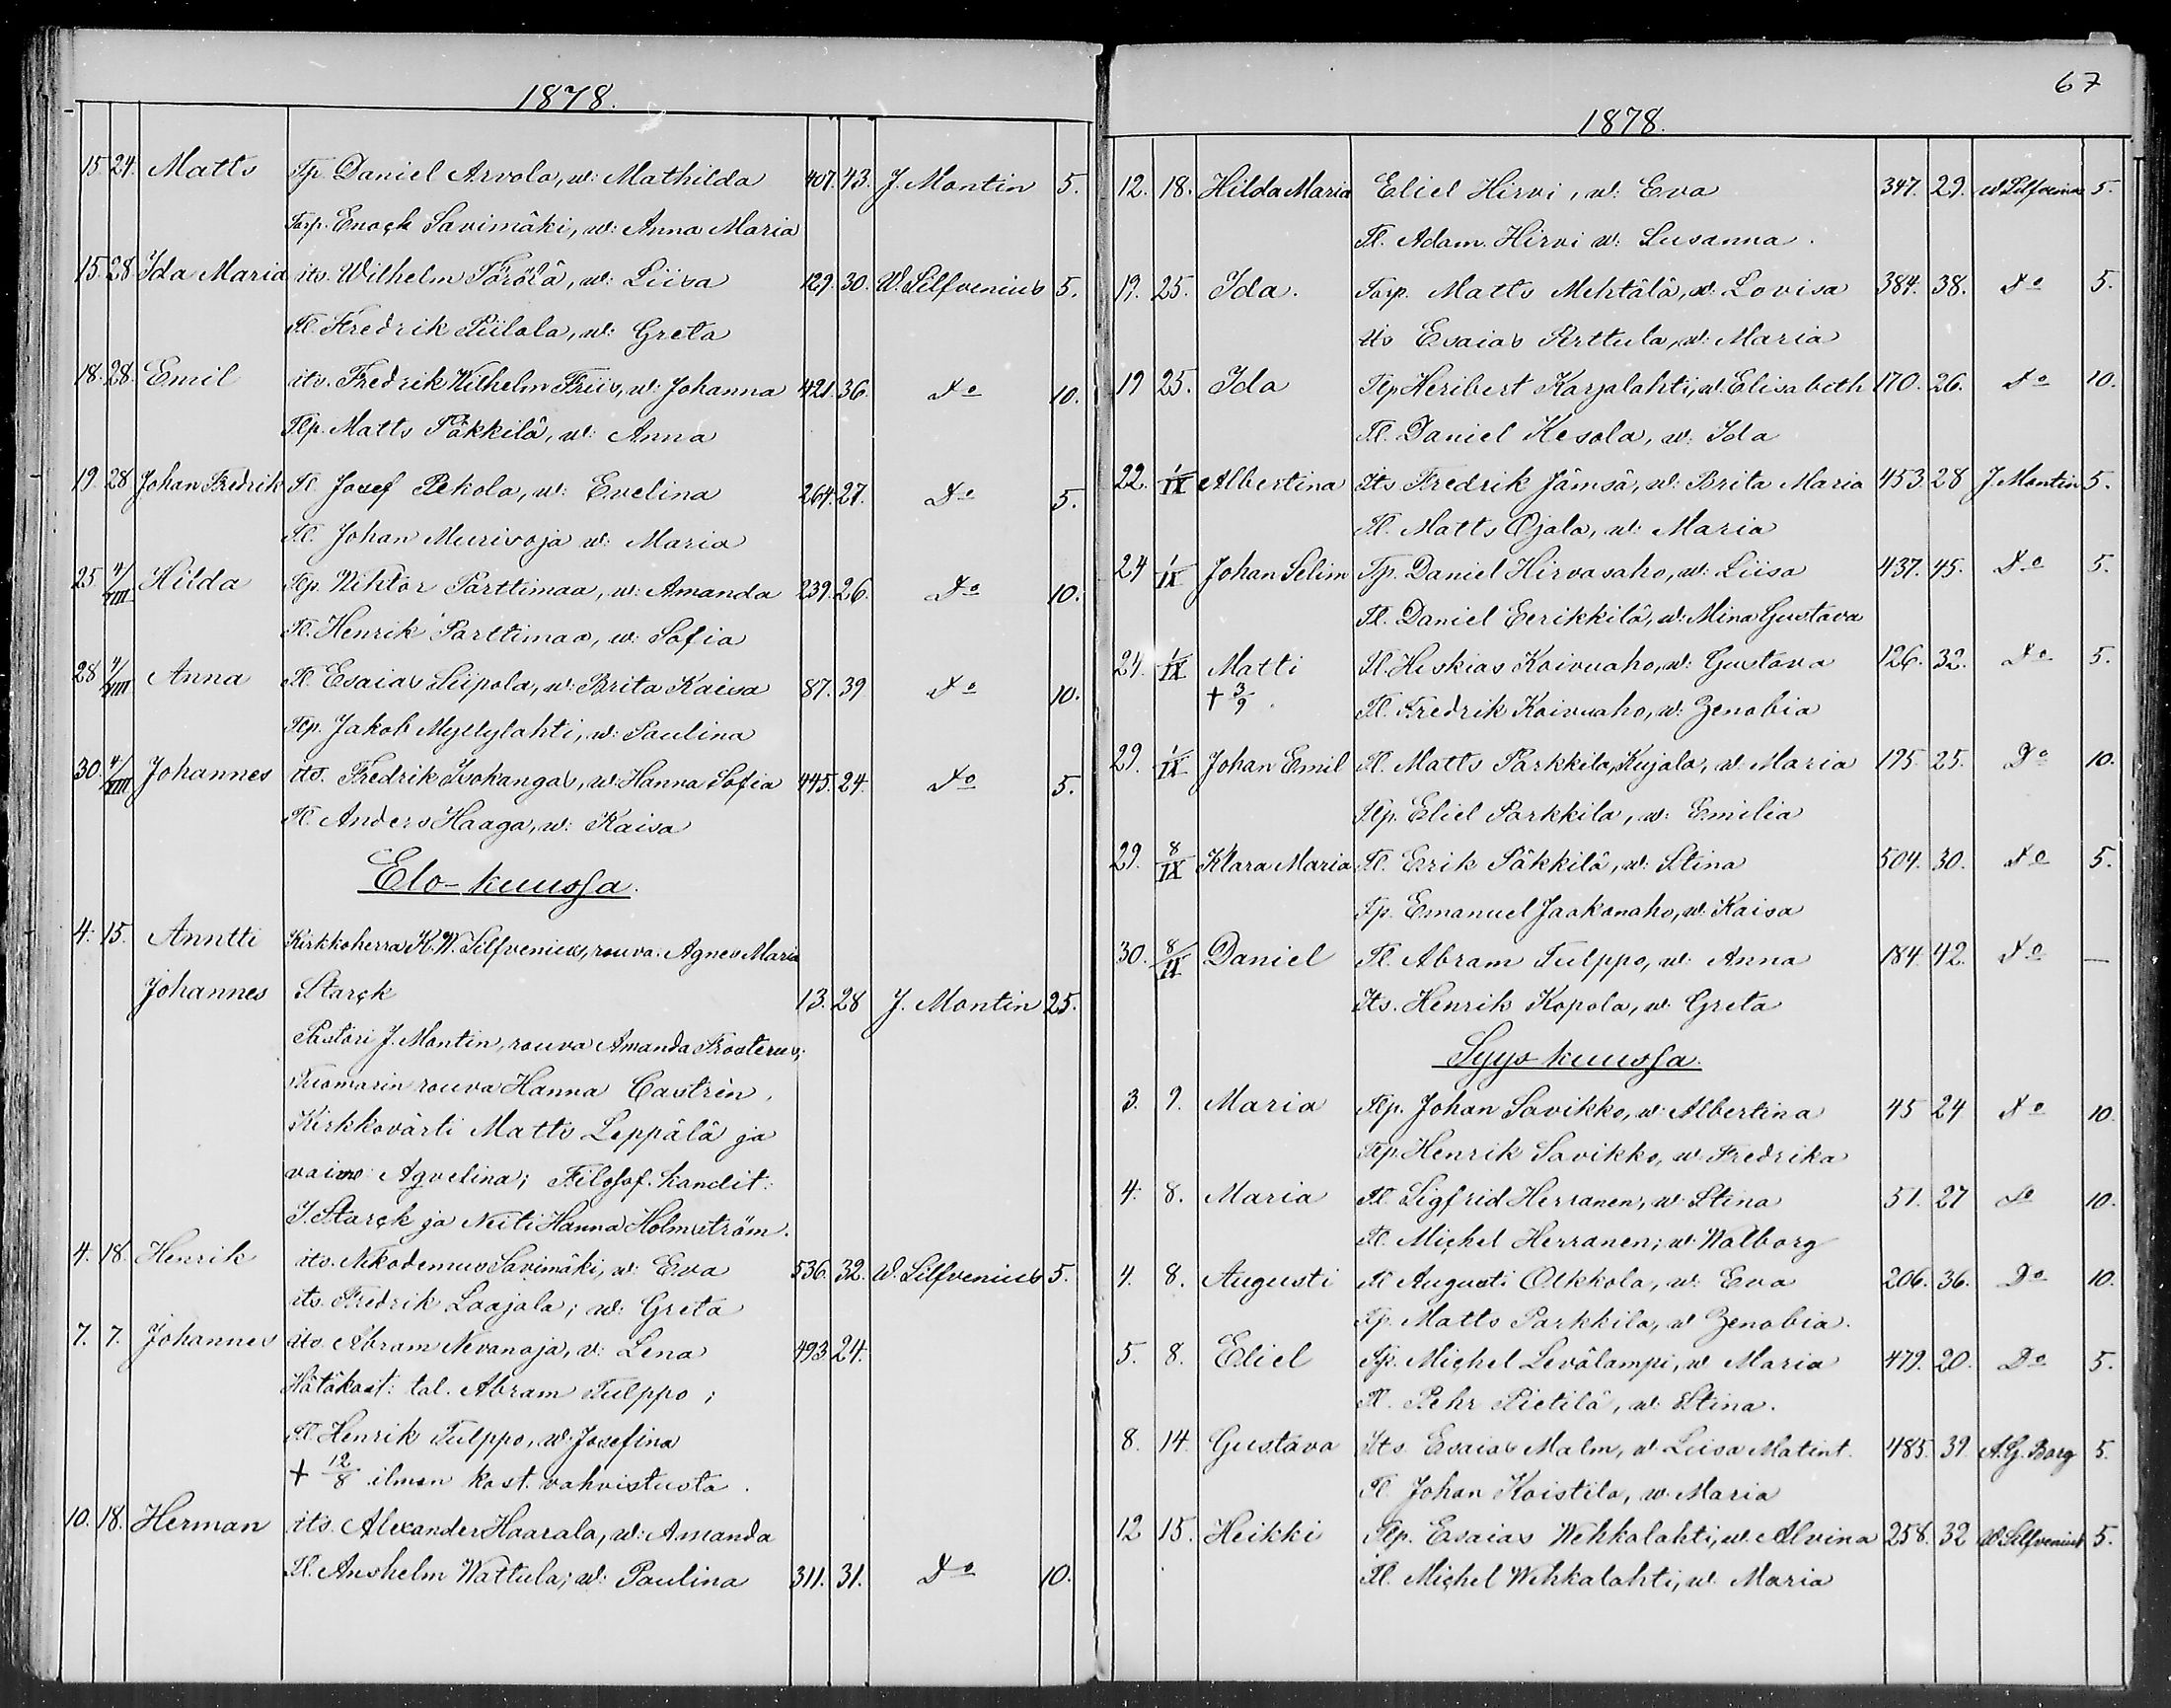 1878.
15. 24. Matts Tp. Daniel Arvola, w: Mathilda 407. 43. J. Montin 5.
Torp. Enock Savimäki, w: Anna Maria
15. 28 Ida Maria its. Wilhelm Törölä, w: Liisa 129. 30. W. Silfvenius 5.
Tl. Fredrik Piilola, w: Greta
18. 28. Emil its. Fredrik Wilhelm Friis, w: Johanna 421. 36. Do 10.
Tlp. Matts Päkkilä, w: Anna
19. 28 Johan Fredrik Tl. Josef Pekola, w: Evelina 264. 27. Do 5.
Tl. Johan Meurisoja w: Maria
25 4/VIII Hilda Tlp. Wihtor Parttimaa, w: Amanda 239. 26. Do 10.
Tl. Henrik Parttimaa, w: Sofia
28 4/VIII Anna Tl. Esaias Siipola, w: Brita Kaisa 87. 39 Do 10.
Tlp. Jakob Myllylahti, w: Paulina
30. 4/VIII Johannes its. Fredrik Isokangas, w: Hanna Sofia 445. 24. Do 5.
Tl. Anders Haaga, w: Kaisa
Elo-kuussa.
4. 15. Anntti Kirkkoherra K. W. Silfvenius, rouva: Agnes Maria
Johannes Starck 13. 28 J. Montin 25.
Pastori J. Montin, rouva Amanda Frosterus;
Tuomarin rouva Hanna Castrèn,
Kirkkovärti Matts Leppälä ja
vaimo: Agvelina; Filosof. kandit:
J. Starck ja Neiti Hanna Holmström.
4. 18. Henrik its. Nikodemus Savimäki, w: Eva 536. 32. W. Silfvenius 5.
its. Fredrik Laajala; w: Greta
7. 7. Johannes its. Abram Nevanoja, v: Lena 493. 24.
Hätäkast: tal. Abram Tulppo;
Tl. Henrik Tulppo, w: Josefina
+ 12/8 ilman kast. vahvistusta.
10. 18. Herman its. Alexander Haarala, w: Amanda
Tl. Anshelm Wattula; w: Paulina 311. 31. Do 10.
67
1878.
12. 18. Hilda Maria Eliel Hirvi, w: Eva 347. 29. W Silfvenius 5.
Tl. Adam Hirvi w: Susanna.
19. 25. Ida. Torp. Matts Mehtälä, w: Lovisa 384. 38. Do 5.
its Esaias Perttula, w: Maria
19 25. Ida Tlp Heribert Karjalahti, w: Elisabeth 170. 26. Do 10.
Tl. Daniel Kesola, w: Ida
22. 1/IX Albertina Its Fredrik Jämsä, w: Brita Maria 453. 28 J. Montin 5.
Tl. Matts Ojala, w: Maria
24 1/IX Johan Selim Tp. Daniel Hirvasaho, w: Liisa 437. 45. Do 5.
Tl. Daniel Eerikkilä, w: Mina Gustava
24. 1/IX Matti Tl. Heskias Koivuaho, w: Gustava 126. 32. Do 5.
+ 3/9. Tl. Fredrik Koivuaho, w: Zenobia
29. 1/IX Johan Emil Tl. Matts Parkkila, Kujala, w. Maria 195. 25. Do 10.
Tlp. Eliel Parkkila, w: Emilia
29. 8/IX Klara Maria Tl. Erik Päkkilä, w: Stina 504. 30. Do 5.
Tp. Emanuel Jaakonaho, w. Kaisa
30. 8/IX Daniel Tl. Abram Tulppo, w: Anna 184. 42. Do —
Its. Henrik Kopola, w: Greta
Syys-kuussa.
3. 9. Maria Tlp. Johan Savikko, w: Albertina 45 24 Do 10.
Tlp. Henrik Savikko, w: Fredrika
4. 8. Maria Tl. Sigfrid Herranen, w: Stina 51. 27 Do 10.
Tl. Michel Herranen; w: Walborg
4. 8. Augusti Tl Augusti Olkkola, w: Eva 206. 36. Do 10.
Tp. Matts Parkkila, w Zenobia.
5. 8. Eliel Tp. Michel Levälampi, w Maria 479. 20. Do 5.
Tl. Pehr Pietilä, w: Stina.
8. 14. Gustava Its. Esaias Malm, w Leisa Matint. 485. 39. A. G. Borg 5.
Tl. Johan Koistila, w. Maria
12 15. Heikki Tlp. Esaias Wehkalahti, w. Alvina 258. 32 W Silfvenius 5.
Tl. Michel Wehkalahti, w. Maria